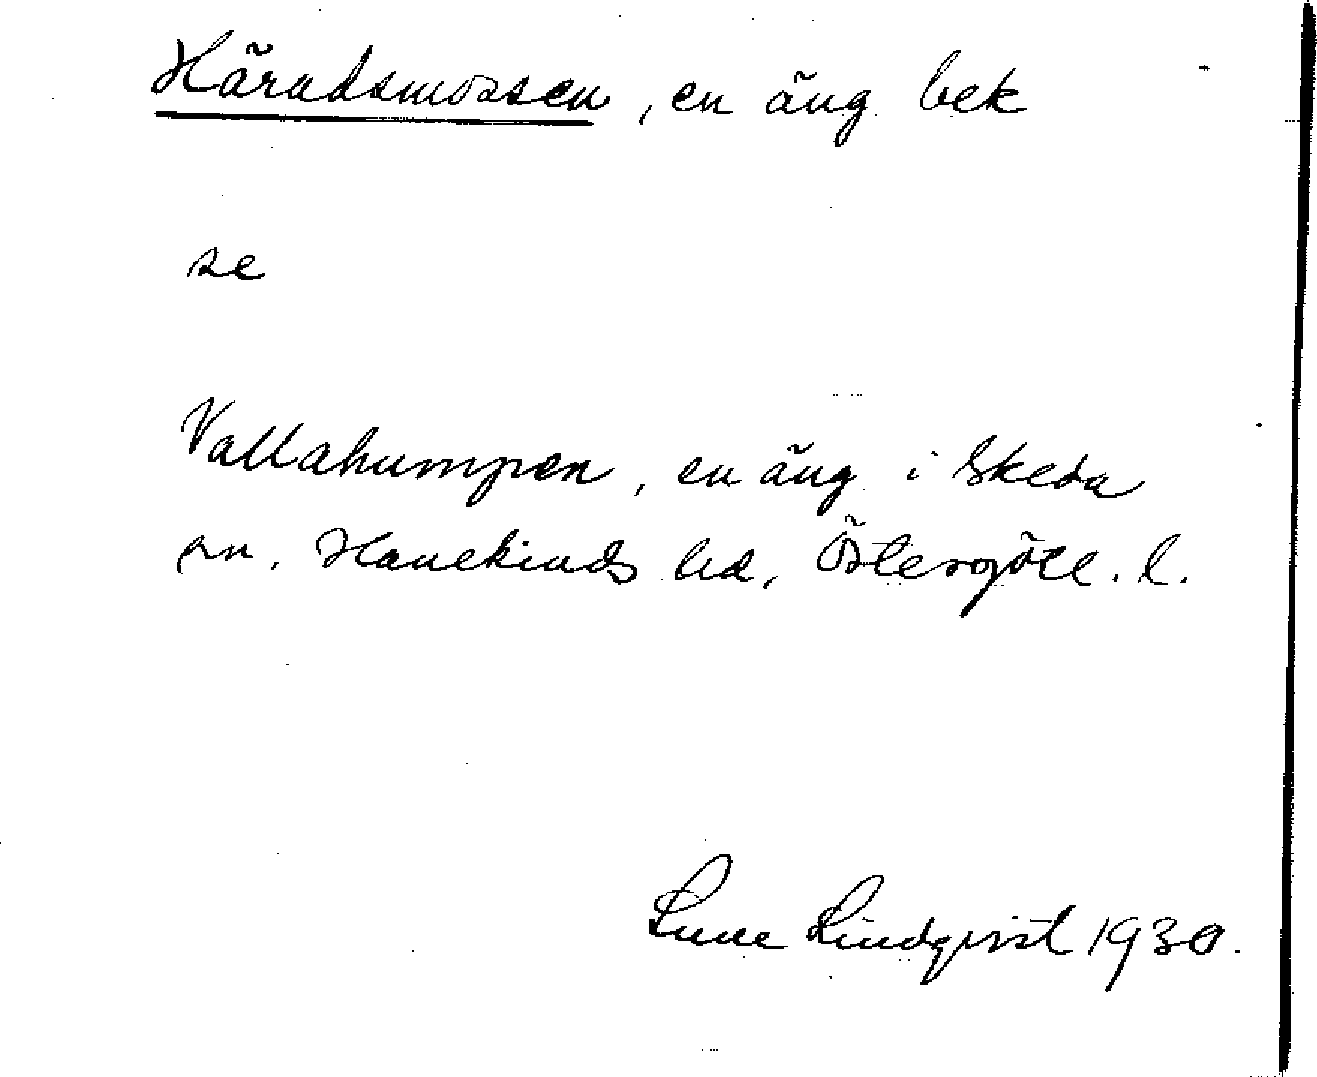 Häradsmossen, en äng bek
se
Vallahumpen, en äng i Skeda
sn. Hanekinds hd, Östergötl. l.
Sune Lindqvist 1930.